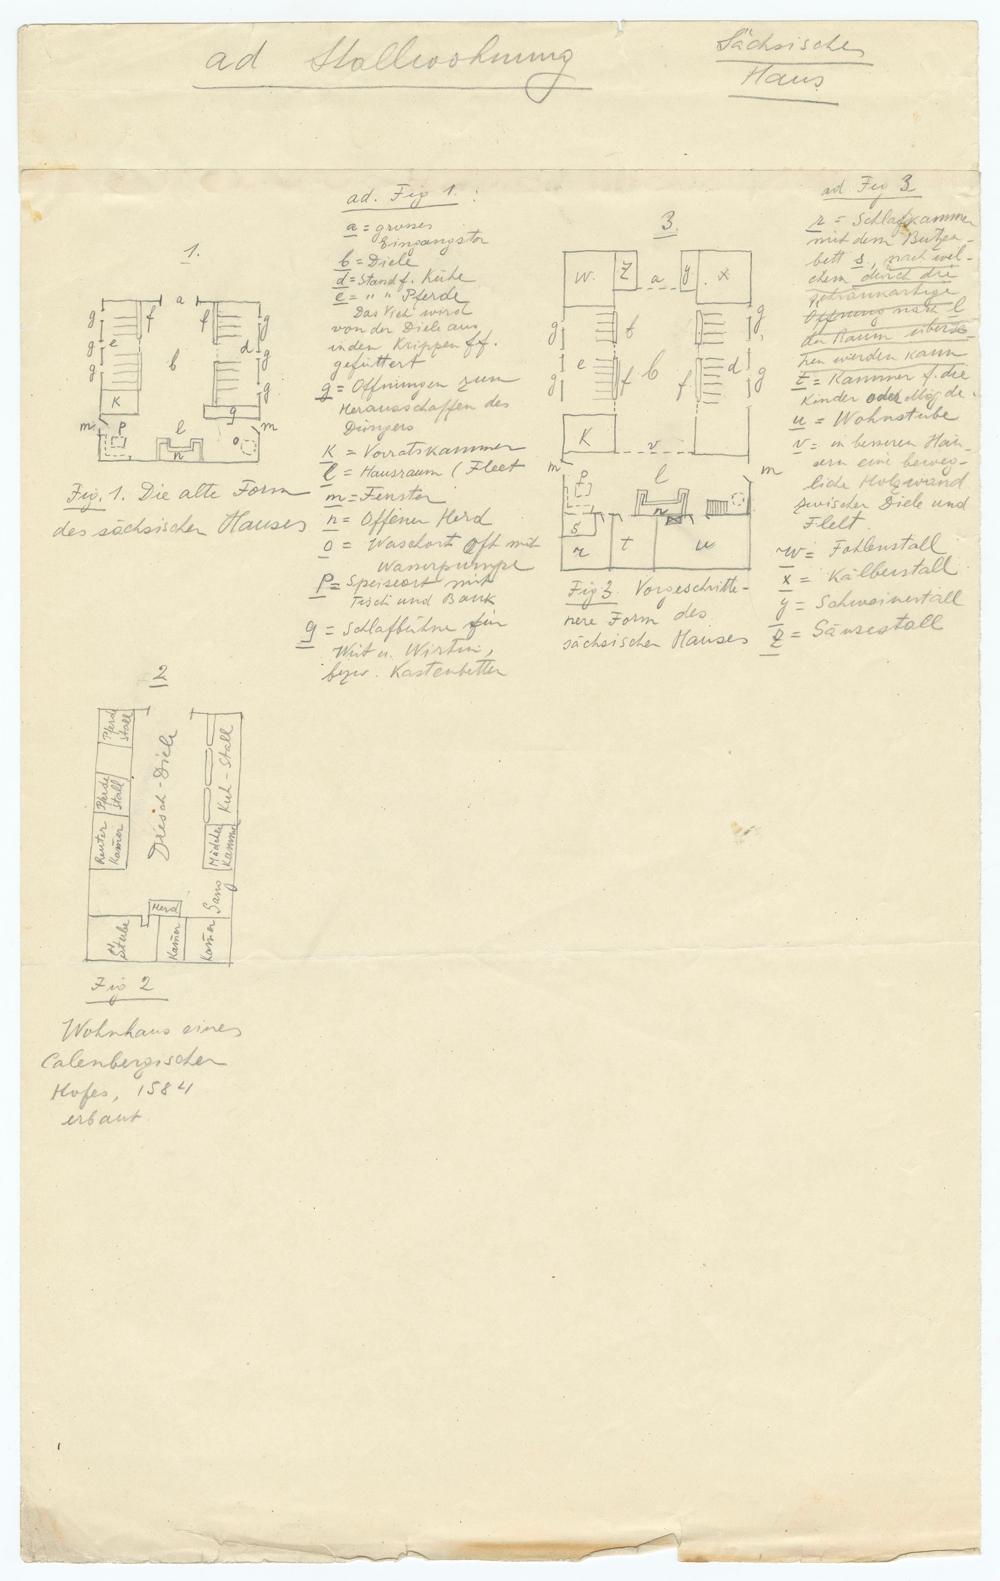 ad Stallwohnung
Sächsisches
Haus
1.
a
g
f
f
g
g
e
d
g
g
b
g
K
g
m
p
l
o
m
n
Fig. 1. Die alte Form
des sächsischen Hauses
ad. Fig 1. :
a = grosses
Eingangstor
b = Diele
d = Stand f. Kühe
e = " " Pferde
Das Vieh wird
von der Diele aus
in den Krippen f f.
gefüttert
g = Öffnungen zum
Herausschaffen des
Düngers
K = Vorratskammer
l = Hausraum (Fleet
m = Fenster
n = Offener Herd
o = Waschort oft mit
Wasserpumpe
p = Speiseort mit
Tisch und Bank
q = Schlafbühne für
Wirt u. Wirtin,
bezw. Kastenbetten
3.
W.
Z
a
y
x
g
f
g
e
f
b
f
d
g
g
K
v
m
l
m
p
n
s
r
t
u
Fig 3. Vorgeschritte-
nere Form des
sächsischen Hauses
ad Fig 3
r = Schlafkammer
mit dem Butzen-
bett s, nach wel-
chem durch die
Öffnung nach l
der Raum
werden kann
t = Kammer f. die
Kinder oder Mägde.
u = Wohnstube
v = in besseren Häu
sern eine beweg-
liche Holzwand
zwischen Diele und
Flett.
w = Fohlenstall
x = Kälberstall
y = Schweinestall
z = Gänsestall
2
Pferd
stall
Dresch-Diele
Kuh-Stall
Pferde
Stall
Kam̄er
Mädchen
Kammer
Gang
Herd
Stube
Kam̄er
Kam̄er
Fig 2
Wohnhaus eines
Calenbergischen
Hofes, 1584
erbaut.